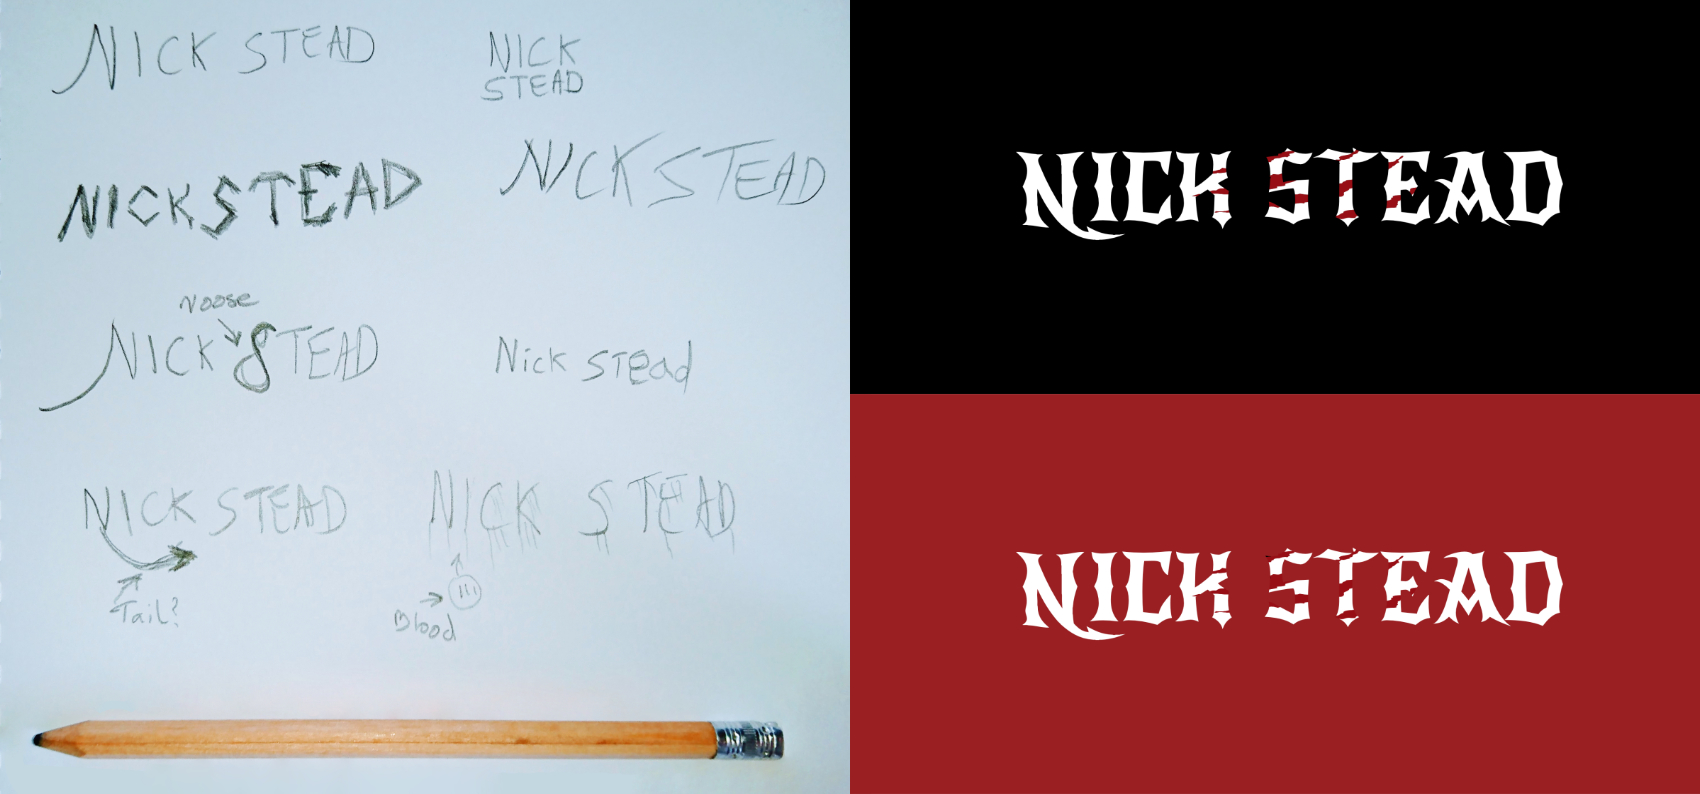 NICK STEAD
NICK
STEAD
NICK STEAD
NICK STEAD
Noose
NICK STEAD
Nick STEad
NICK STEAD
Tail?
NICK STEAD
Blood
NICK STEAD
NICK STEAD